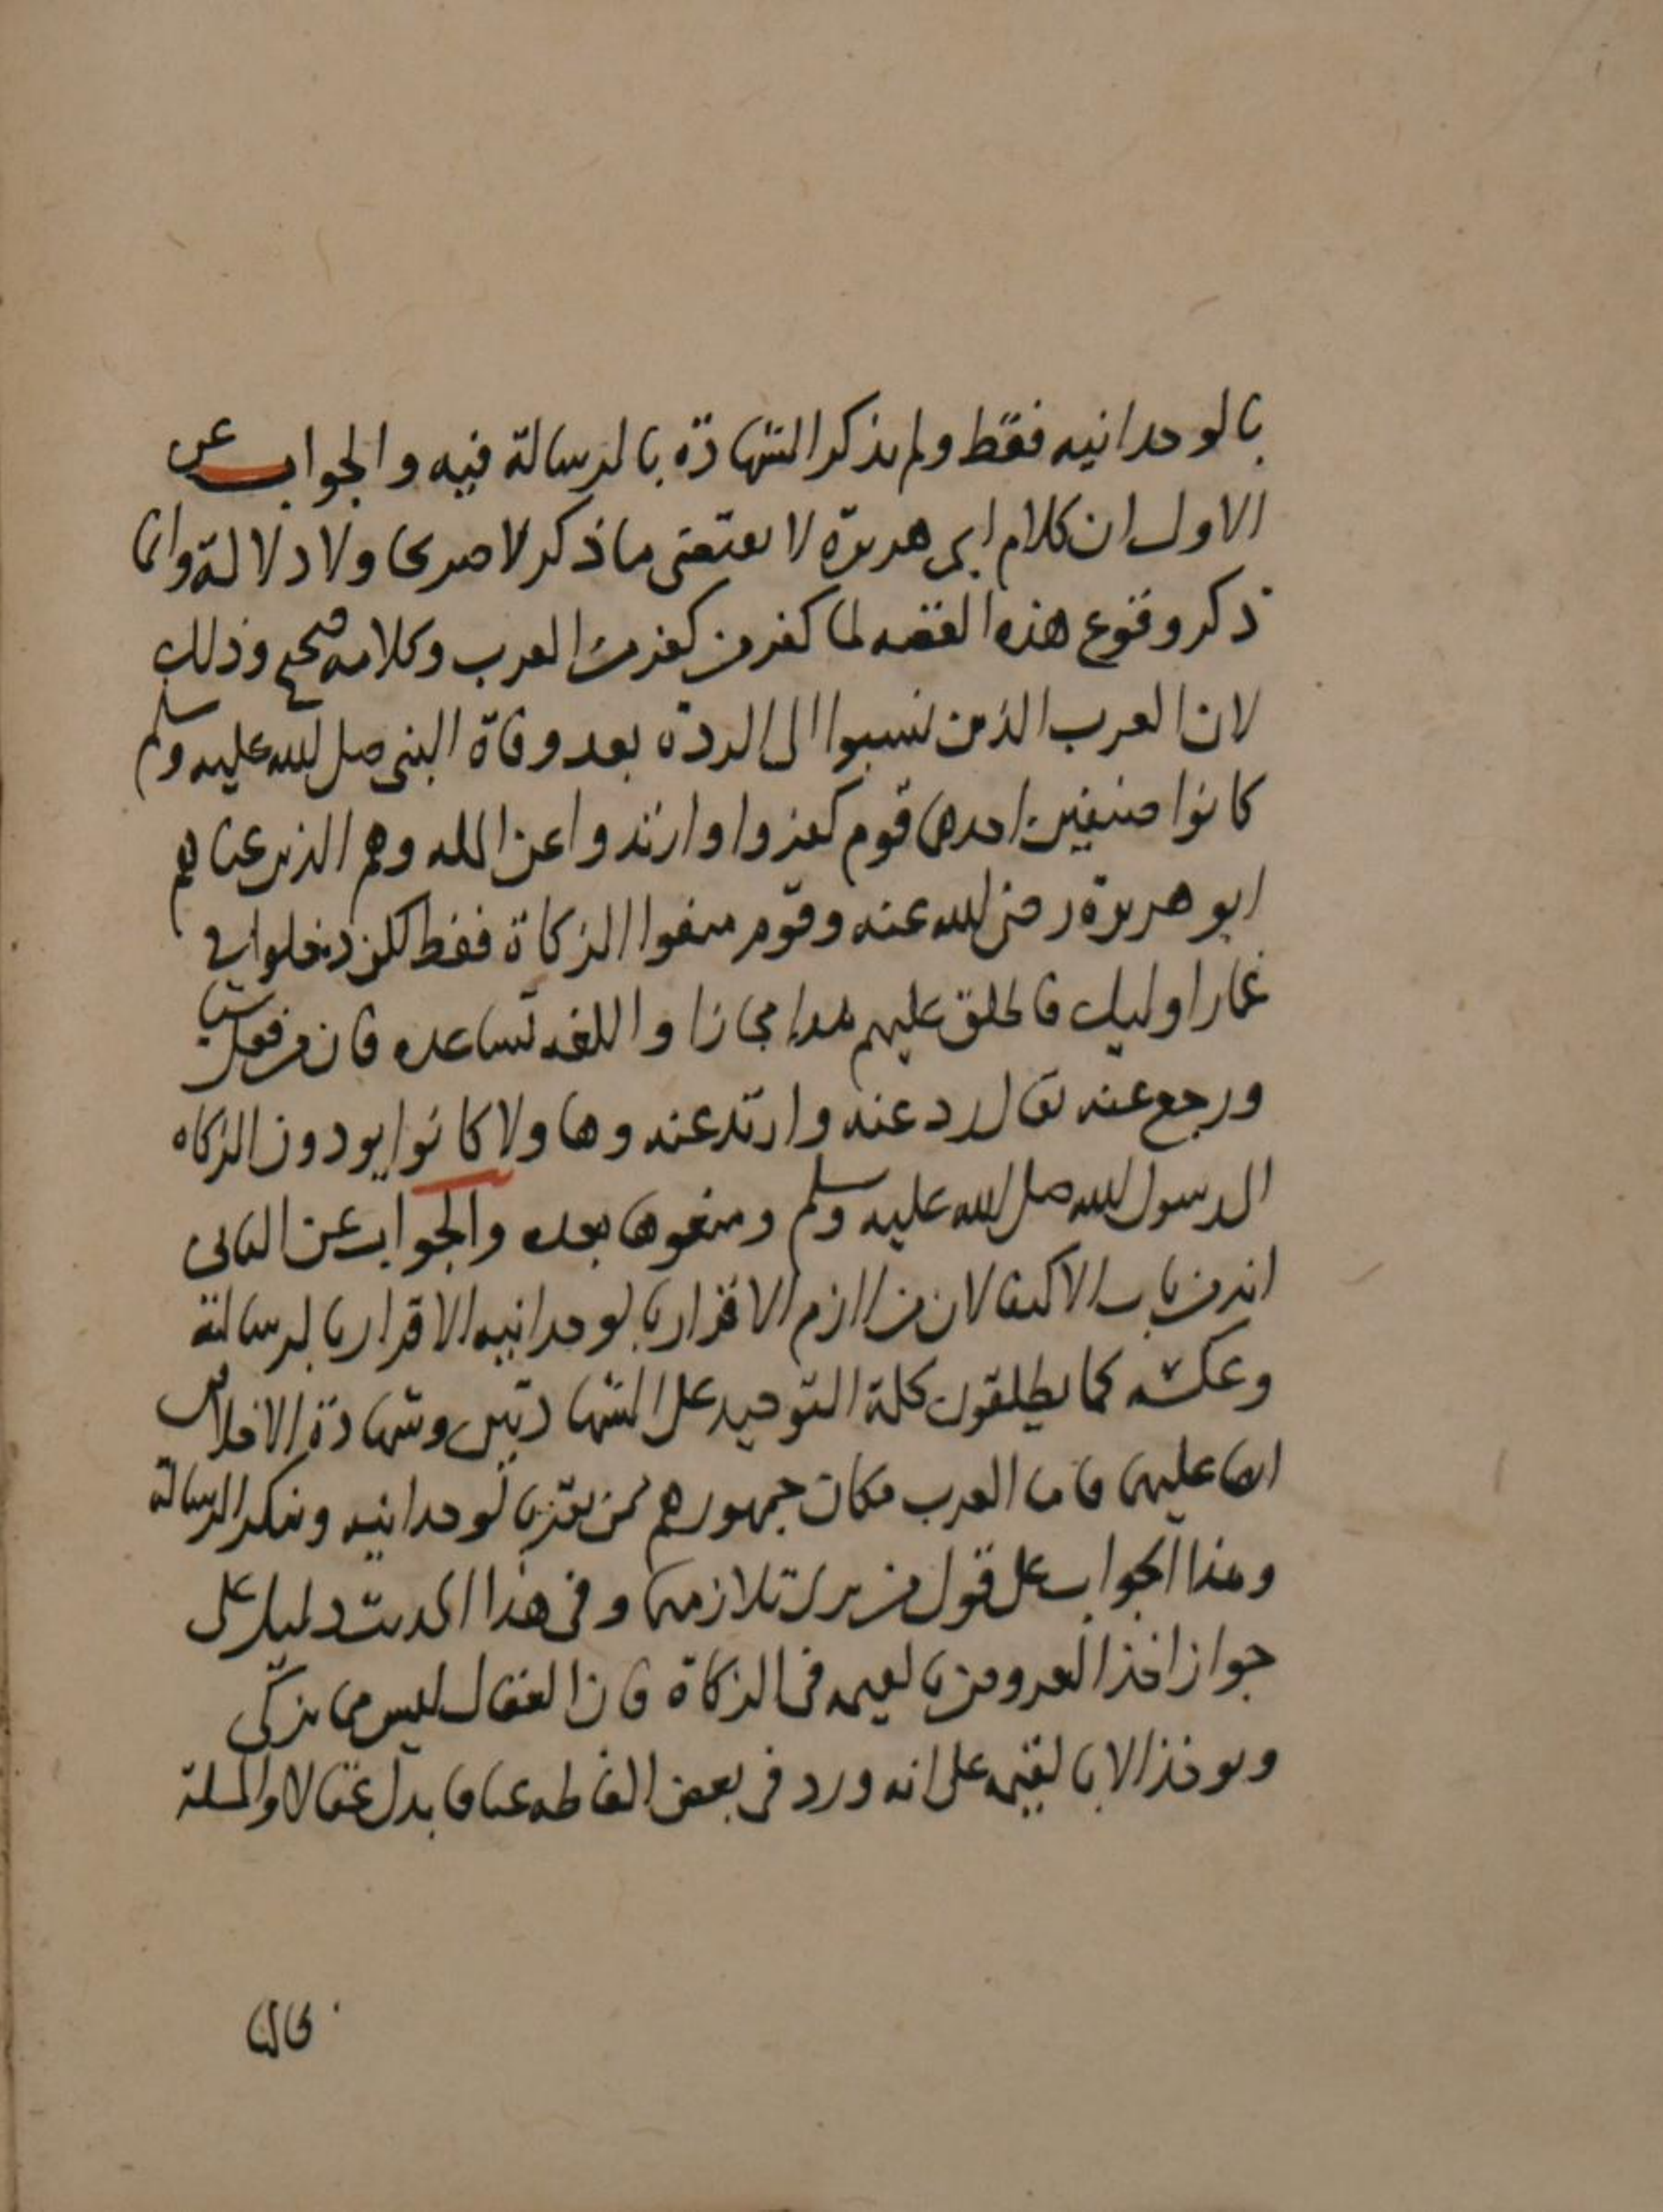 بالوحدانيه فقط ولم يذكر الشهادة بالرسالة فيه والجواب عن
الاول ان كلام ابي هريرة لا يقتضى ما ذكر لا صريحا ولا دلالة وانما
ذكر وقوع هذه القصه لما كفر من كفر من العرب وكلامه صحيح وذلك
لان العرب الذين نسبوا الى الردة بعد وفاة النبى صلى الله عليه وسلم
كانوا صنفين احدهما قوم كفروا وارتدوا عن المله وهم الذين عناهم
ابو هريرة رضى الله عنه وقوم منعوا الزكاة فقط لكن دخلوا فى
غمار اوليك فاطلق عليهم هذا مجازا واللغه تساعده فان من فعل شيا
ورجع عنه يقال رد عنه وارتد عنه وهاولا كانوا يودون الزكاه
الى رسول الله صلى الله عليه وسلم ومنعوها بعده والجواب عن الثانى
انه من باب الاكتفا لان من لازم الاقرار بالوحدانيه الاقرار بالرسالة
وعكسه كما يطلقون كلمة التوحيد على الشهادتين وشهادة الاخلاص
ايضا عليهما فاما العرب فكان جمهورهم ممن يقر بالوحدانيه وينكر الرسالة
وهذا الجواب على قول من يرى تلازمهما وفى هذا الحديث دليل على
جواز اخذ العروض بالقيمه فى الزكاة فان العقال ليس مما يزكى
ويوخذ الا بالقيمه على انه ورد فى بعض الفاظه عناقا بدل عقالا والمسلة
بحالها